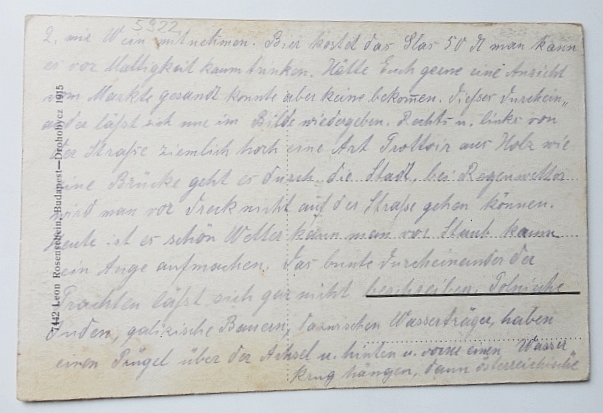 5922
2. wie Wein mitnehmen. Bier kostet das Glas 50 H man kann
es vor Mattigkeit kaum trinken. Hätte Euch gerne eine Ansicht
vom Markte gesandt konnte aber keine bekommen. Dieser Durchein„
ander läßt sich nur im Bilde wiedergeben. Rechts u. links von
der Straße ziemlich hoch eine Art Trottoir aus Holz wie
eine Brücke geht es durch die Stadt, bei Regenwetter
wird man vor Dreck nicht auf der Straße gehen können.
Heute ist es schön Wetter kann man vor Staub kaum
ein Auge aufmachen. Das bunte Durcheinander der
Trachten läßt sich gar nicht beschreiben. Polnische
Juden, galizische Bauern, dazwischen Wasserträger, haben
einen Prügel über der Achsel u. hinten u. vorne einen Wasser
krug hängen, dann österreichische
7442 Leon Rosenschein, Budapest—Drohobycz 1915